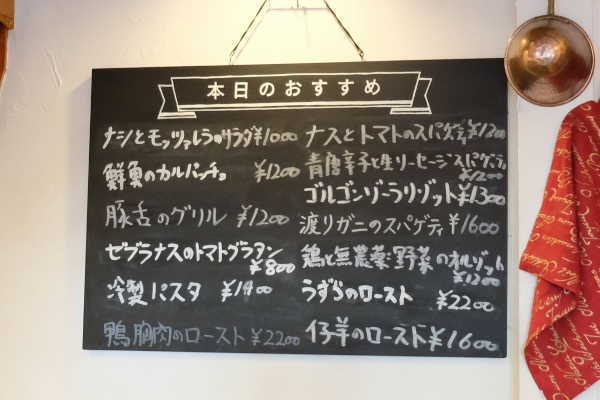 本日のおすすめ
ナシとモッツァレラのサラダ ¥1000
鮮魚のカルパッチョ ¥1200
豚舌のグリル ¥1200
ゼブラナスのトマトグラタン
¥800
冷製パスタ ¥1400
鴨胸肉のロースト ¥2200
ナスとトマトのスパゲティ ¥1200
青唐辛子と生ソーセージスパゲティ
¥1200
ゴルゴンゾーラリゾット ¥1300
渡りガニのスパゲティ ¥1600
鶏と無農薬野菜のオルゾット
¥1200
うずらのロースト ¥2200
仔羊のロースト ¥1600